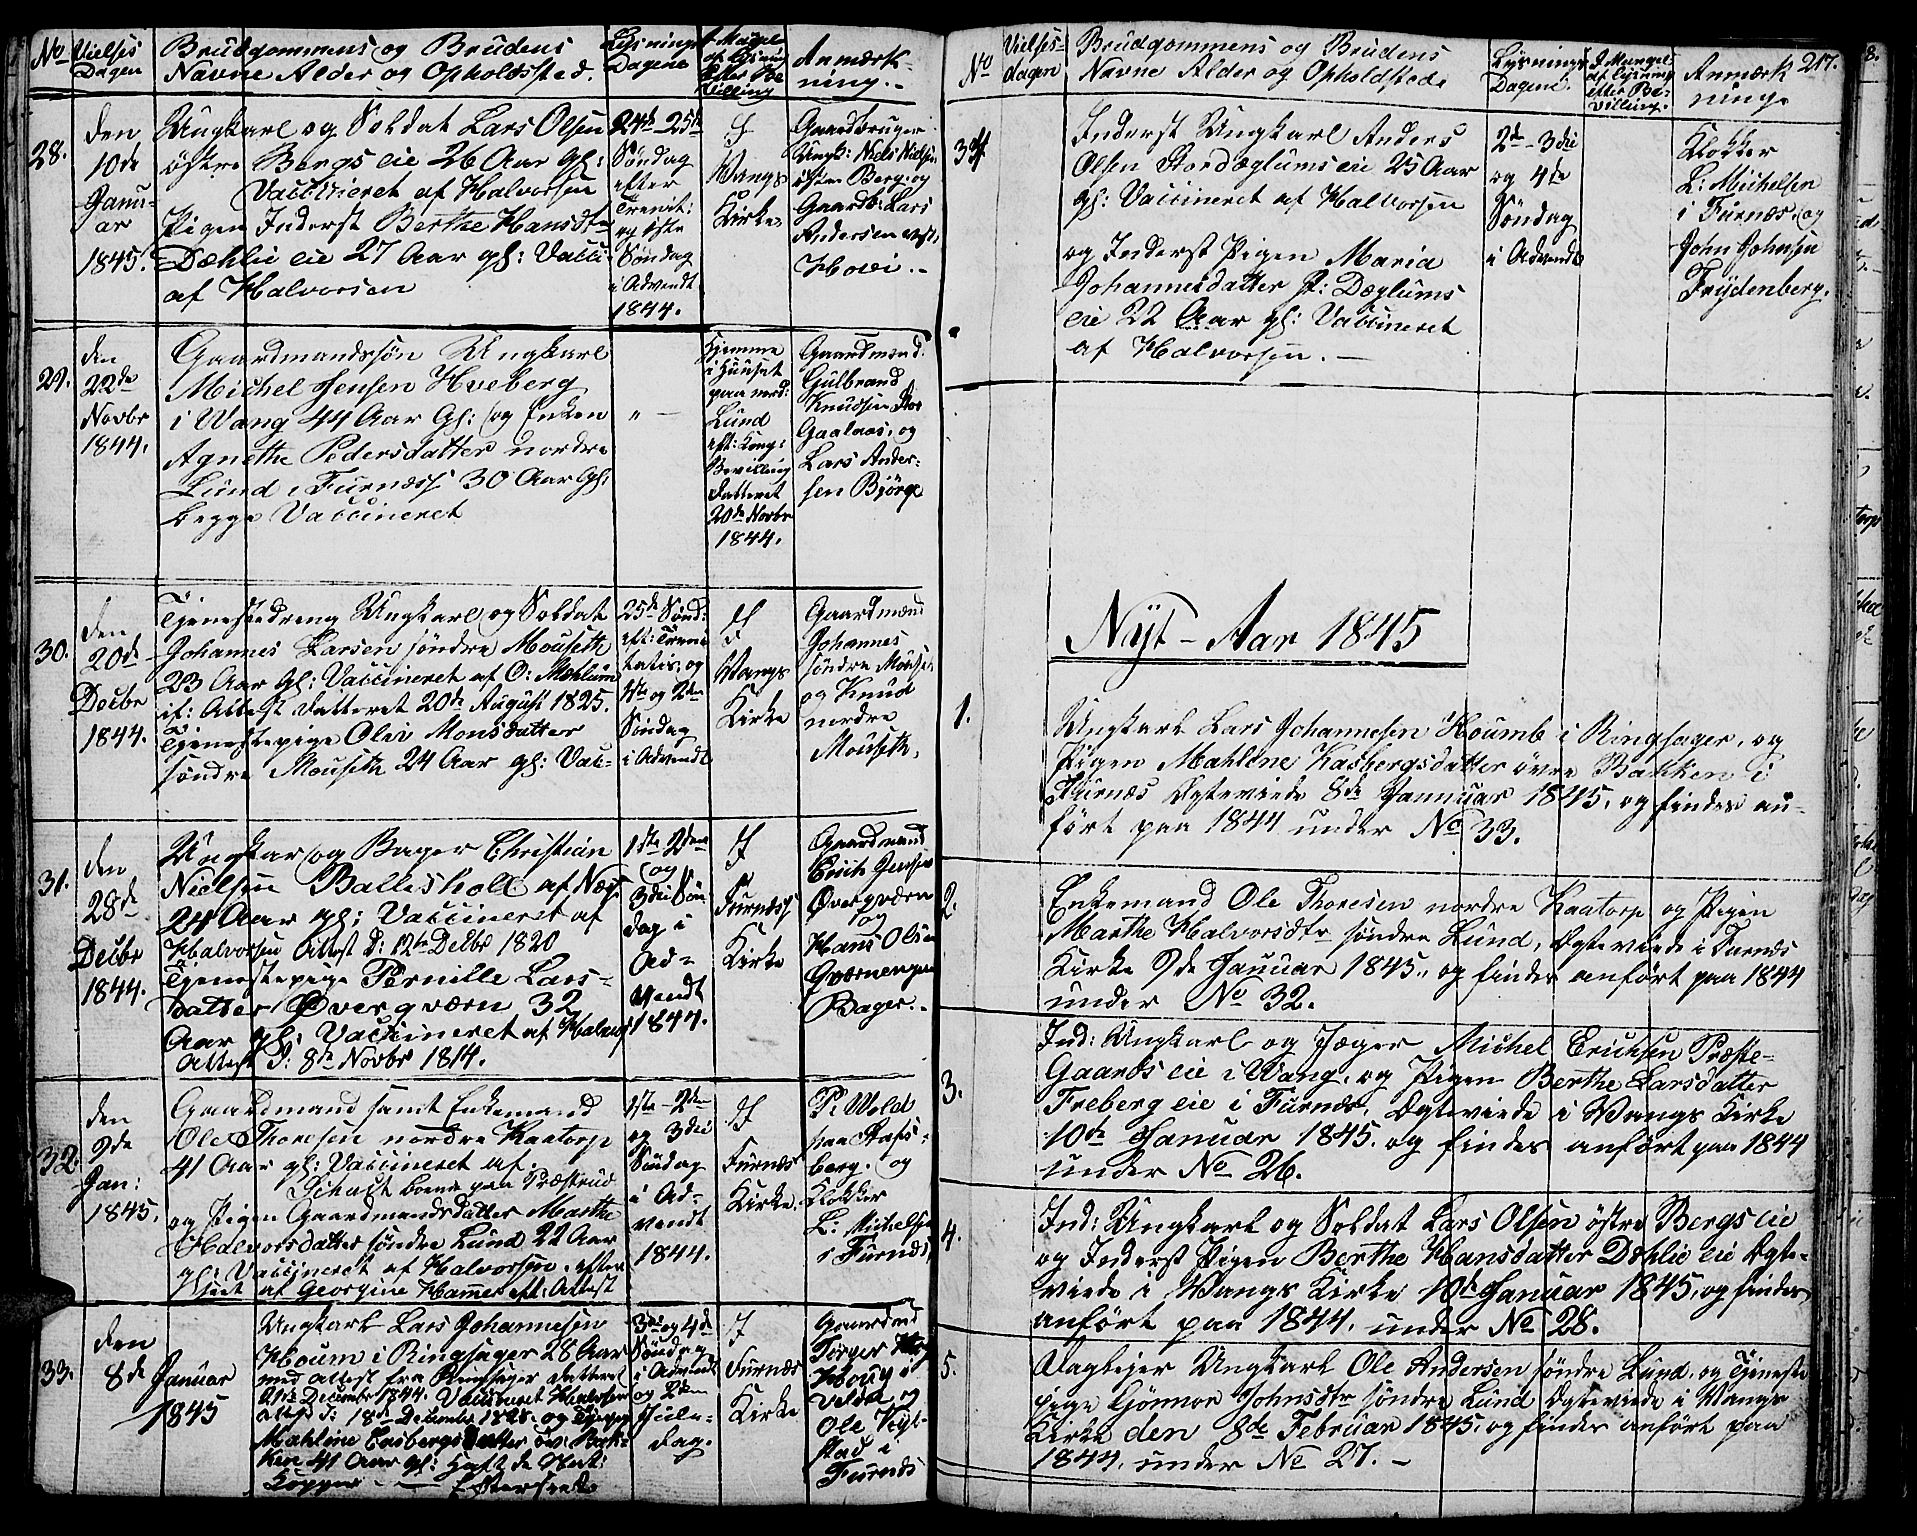 No
Vielses
Dagen
Brudgommens og Brudens
Navne Alder og Opholdssted.
Lysnings
Dagene
I Mangel
af Lysning
efter Be
villing
Anmærk
ning.
28.
den
10de
Janu-
ar
1845.
Ungkarl og Soldat Lars Olsen
östre Bergs eie 26 Aar gl:
Vaccineret af Halvorsen
Pigen Inderst Berthe Hansdtr
Dæhlie eie 27 Aar gl: Vacci:
af Halvorsen
24de 25de
Söndag
efter
Trenit:
og 1ste
Söndag
i Advendt
1844.
I
Wangs
Kirke
Gaardbruger
Ungk: Niels Nielsen
östre Berg og
Gaardb: Lars
Andersen
Howi.
29.
den
22de
Novbr
1844.
Gaardmandssøn Ungkarl
Michel Jensen Hveberg
i Wang 44 Aar Gl: og Enken
Agnethe Pedersdatter nordre
Lund i Furnæss 30 Aar Gl:
begge Vaccineret
"
Hjemme
i Huuset
paa nord:
Lund
eft: Kong:
Bevilling
datteret
20de Novbr
1844.
Gaardmænd:
Gulbrand
Knudsen Stor
Gaalaas, og
Lars Ander-
sen Bjørge
30.
den
20de
Decbr
1844.
Tjenestedreng Ungkarl og Soldat
Johannes Larsen söndre Mouseth
23 Aar gl: Vaccineret af O: Mæhlum
if: Attest datteret 20de August 1825.
Tjenestepige Olev Monsdatter
söndre Mouseth 24 Aar gl: Vac-
25de Sönd:
eft: Treni
tatis, og
1ste og 2den
Söndag
i Advendt
I
Wangs
Kirke
Gaardmænd
Johannes
söndre Mouse:
og Knud
nordre
Mouseth.
31.
den
28de
Decbr
1844.
Ungkar og Bager Christian
Nielsen Ballishol af Næs
24 Aar gl: Vaccineret af
Halvorsen Attest d: 12te Decbr 1820
Tjenestepige Pernille Lars-
datter Øvergværn 32
Aar gl: Vaccineret af Halvors
Attest d: 8de Novbr 1814.
1ste 2den
og
3die Søn
dag i
Ad-
vendt
1844.
I
Furnæs
Kirke
Gaardmand
Erich Jensen
Øvergværn
og
Hans Olsen
Gværnengen
Bager.
32.
den
9de
Jan:
1845.
Gaardmand samt Enkemand
Ole Thoresen nordre Kaatorp
41 Aar gl: Vaccineret af
boende paa Præstrud
og Pigen Gaardmandsdatter Marthe
Halvorsdatter söndre Lund 22 Aar
gl: Vaccineret af Halvorsen. efter
af Georgine Hammer eft: Attest
1ste-2den
og 3die
Söndag
i Ad-
vendt
1844.
I
Furnæs
Kirke.
P: Wold
paa Stafs-
berg. og
Klokker
L: Michelsen
i Furnæs
33.
den
8de Januar
1845
Ungkarl Lars Johannesen
Houm i Ringsager 28 Aar
med Attest fra Ringsager datteret
Decembr 1844. Vaccineret Halvorsen
Attest d: 18de December 1828. og Pigen
Mahline Casbergsdatter öv: Bak-
ken 41 Aar gl: Haft de Nat:
Kopper
3die og 4de
Söndag
i Advendt
og 2den
Jule-
dag.
I
Furnæs
Kirke
Gaardmd
Torger
Houg i
Veldre og
Ole
stad i
Furnæs
No
Vielses-
dagen
Brudgommens og Brudens
Navne Alder og Opholdstede
Lysnings
Dagene
I Mangel
af Lysning
efter Be-
villing.
Anmærk
ning.
217.
34
Inderst Ungkarl Anders
Olsen Stordæglums eie 25 Aar
gl: Vaccineret af Halvorsen
og Inderst Pigen Maria
Johannesdatter St: Dæglums
eie 22 Aar gl: Vaccineret
af Halvorsen.
2de-3die
og 4de
Söndag
i Advendt
Klokker
L: Michelsen
i Furnæs, og
John Johnsen
Frydenberg.
Nyt-Aar 1845
1.
Ungkarl Lars Johannesen Houmb i Ringsager, og
Pigen Mahline Kasbergsdatter övre Bakken i
Furnæs Ægteviede 8de Januar 1845, og findes an-
ført paa 1844 under No 33.
2.
Enkemand Ole Thoresen nordre Kaatorp og Pigen
Marthe Halvorsdtr söndre Lund, Ægteviede i Furnæs
Kirke 9de Januar 1845, og findes anført paa 1844
under No 32.
3.
Ind: Ungkarl og Jæger Michel Ericksen Præste-
Gaards eie i Wang, og Pigen Berthe Larsdatter
Freberg eie i Furnæs, Ægteviede i Wangs Kirke
10de Januar 1845. og findes anført paa 1844
under No 26.
4.
Ind: Ungkarl og Soldat Lars Olsen östre Bergs eie
og Inderst Pigen Berthe Hansdatter Dæhlie eie Ægte-
viede i Wangs Kirke 10de Januar 1845, og findes
anført paa 1844. under No 28.
5.
Ungkarl Ole Andersen söndre Lund, og Tjeneste
pige Gjönnor Johnsdtr söndre Lund Ægteviede i Wangs
Kirke den 8de Februar 1845, og findes anført paa
1844. under No 27.